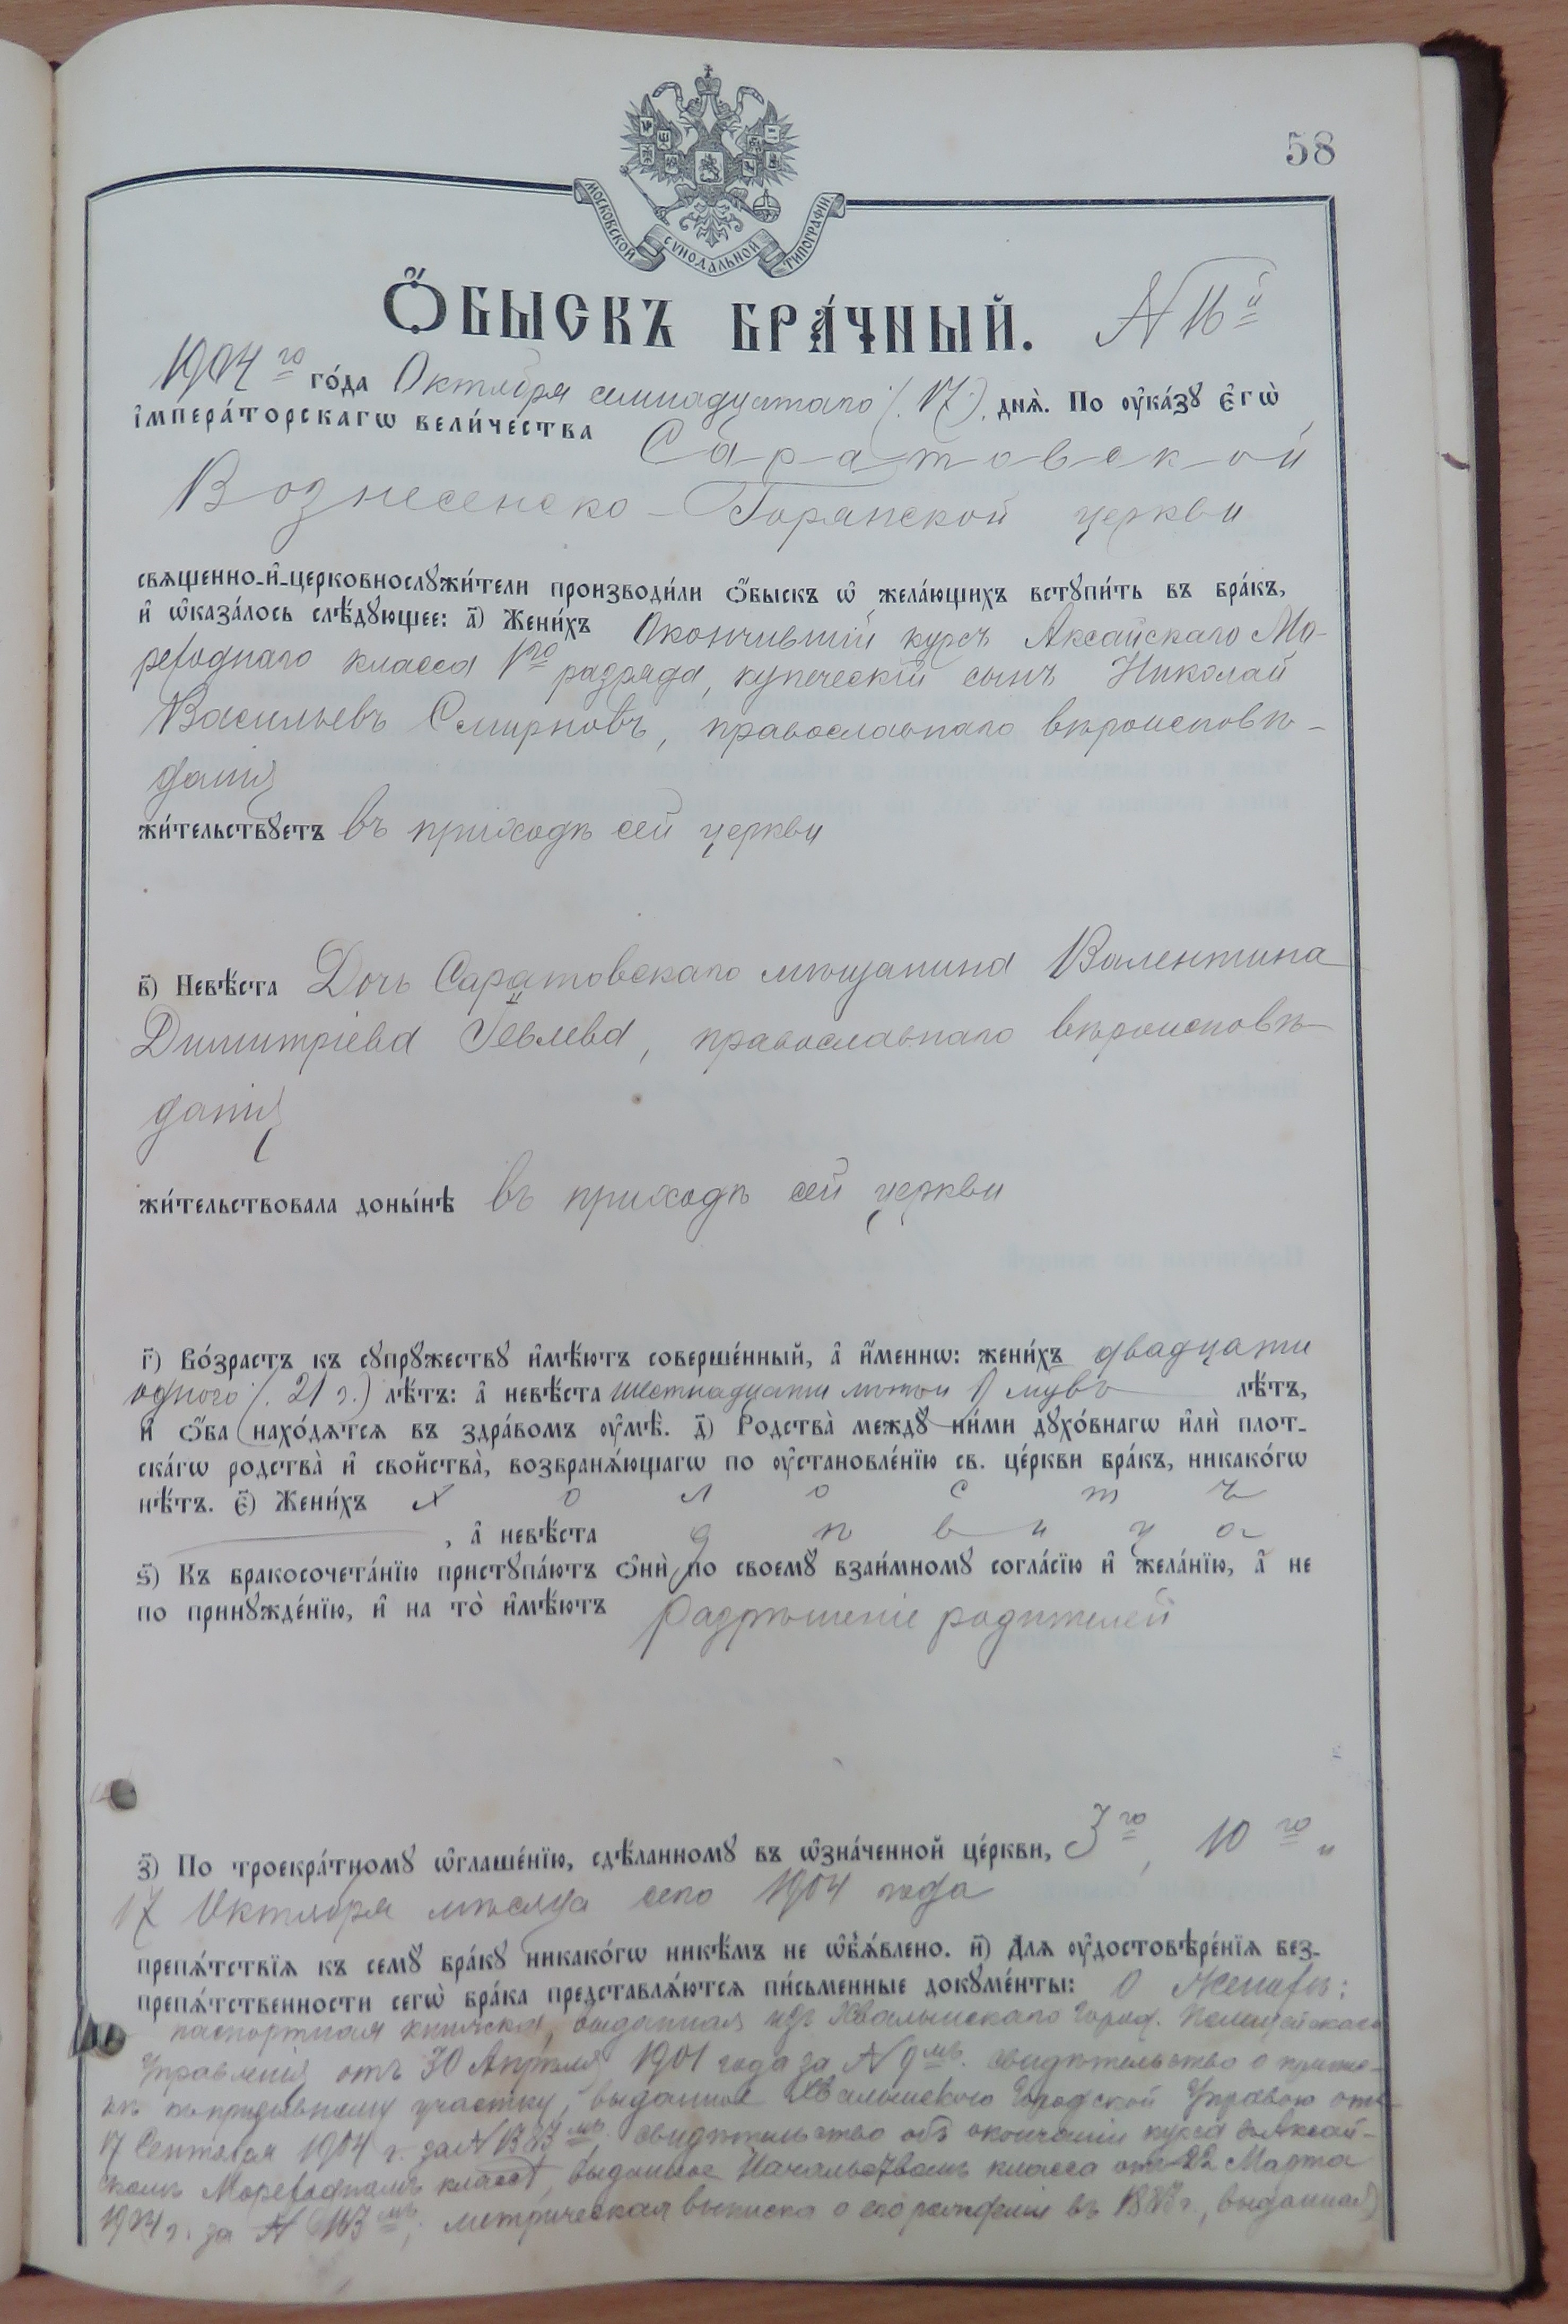 58
МОСКОВСКОЙ СѴНОДАЛЬНОЙ ТИПОГРАФІИ
Ѻ҆́БЫСКЪ БРА́ЧНЫЙ. № 16й
1904го го́да Октября семнадцатаго (17) днѧ̀. По ᲂу҆ка́зꙋ є҆гѡ̀
і҆мпера́торскагѡ вели́чества Саратовской
Вознесенско-Горянской церкви
свѧщенно-и҆-церковнослꙋжи́тели производи́ли ѻ҆́быскъ ѡ҆ жела́ющихъ встꙋпи́ть въ бра́къ,
и҆ ѡ҆каза́лось слѣ́дꙋющее: а҃) Жени́хъ Окончившій курсъ Аксайскаго Мо-
реходнаго класса 1го разряда, купеческій сынъ Николай
Васильевъ Смирновъ, православнаго вѣроисповѣ-
данія
жи́тельствꙋетъ въ приходѣ сей церкви
в҃) Невѣ́ста Дочь Саратовскаго мѣщанина Валентина
Димитріева Іевлева, православнаго вѣроисповѣ-
данія
жи́тельствовала доны́нѣ въ приходѣ сей церкви
г҃) Во́зрастъ къ сꙋпрꙋ́жествꙋ и҆мѣ́ютъ соверше́нный, а҆ и҆́меннѡ: жени́хъ двадцати
одного (21 г.) лѣ́тъ: а҆ невѣ́ста шестнадцати лѣтъ лѣ́тъ,
и҆ ѻ҆́ба нахо́дѧтсѧ въ здра́вомъ ᲂу҆мѣ̀. д҃) Родства̀ междꙋ̀ ни́ми дꙋхо́внагѡ и҆лѝ плот-
ска́гѡ родства̀ и҆ свойства̀, возбранѧ́ющагѡ по ᲂу҆становле́нїю св. це́ркви бра́къ, никако́гѡ
нѣ́тъ. є҃) Жени́хъ холостъ
, а҆ невѣ́ста дѣвица
ѕ҃) Къ бракосочета́нїю пристꙋпа́ютъ ѻ҆нѝ по своемꙋ̀ взаи́мномꙋ согла́сїю и҆ жела́нїю, а҆ не
по принꙋжде́нїю, и҆ на то̀ и҆мѣ́ютъ разрѣшеніе родителей
з҃) По троекра́тномꙋ ѡ҆глаше́нїю, сдѣ́ланномꙋ въ ѡ҆зна́ченной це́ркви, 3го, 10го и
17 Октября мѣсяца сего 1904 года
препѧ́тствїѧ къ семꙋ̀ бра́кꙋ никако́гѡ никѣ́мъ не ѡ҆б̾ѧ́влено. и҃) Длѧ ᲂу҆достовѣре́нїѧ без-
препѧ́тственности сегѡ̀ бра́ка представлѧ́ютсѧ пи́сьменные докꙋме́нты: О женихѣ:
паспортная книжка, выданная изъ Хвалынскаго Город. Полицейскаго
Управленія отъ 30 Апрѣля 1901 года за № 9мъ. свидѣтельство о припис-
кѣ къ призывному участку, выданное Хвалынскою Городской Управою отъ
17 Сентября 1904 г. за № свидѣтельство объ окончаніи курса въ Аксай-
скомъ Мореходномъ классѣ, выданное Начальствомъ класса отъ 22 Марта
1904 г. за № 163мъ; метрическая выписка о его рожденіи въ 1883 г., выданная